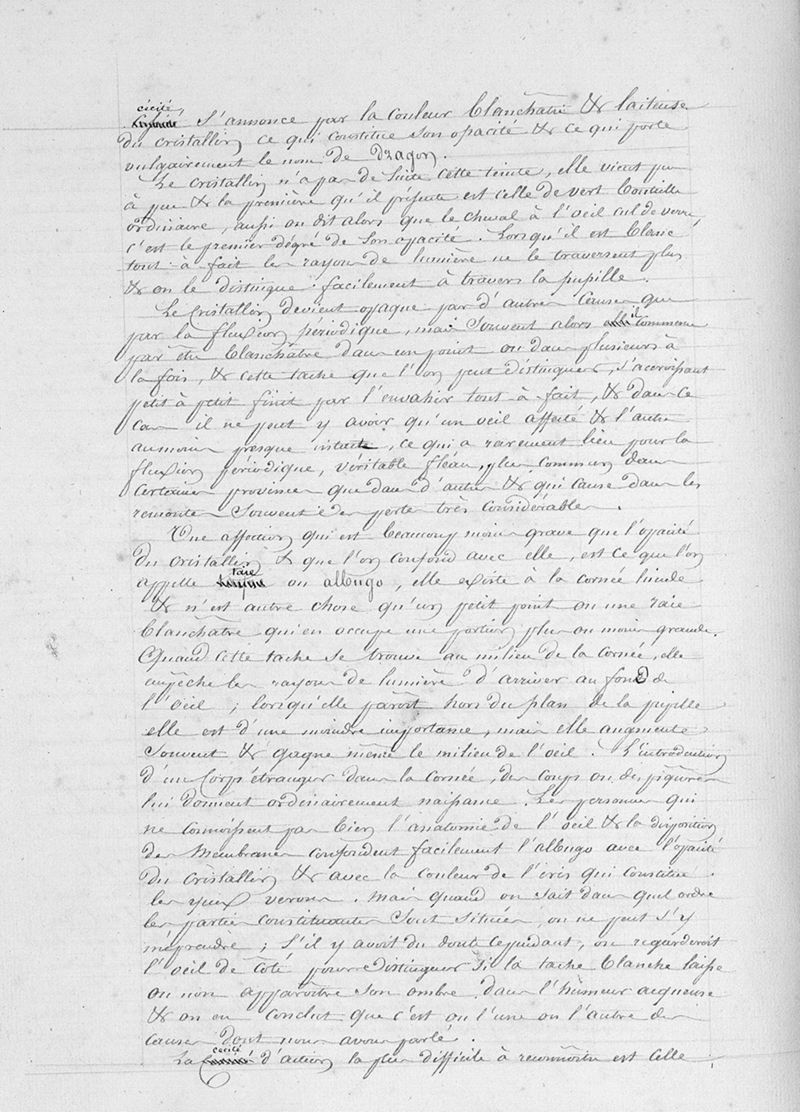 cécité
s'annonce par la couleur blanchâtre & laiteuse
du cristallin, ce qui constitue son opacité & ce qui porte
vulgairement le nom de Dragon.
Le cristallin n'a pas de suite cette teinte, elle vient peu
à peu & la première qu'il présente est celle de vert bouteille
ordinaire, aussi on dit alors que le cheval à l'oeil cul de verre,
c'est le premier dégré de son opacité. Lorsqu'il est blanc
tout à fait les rayons de lumière ne le traversent plus
& on le distingue facilement à travers la pupille.
Le cristallin devient opaque par d'autres causes que
par la fluxion périodique, mais souvent alors il commence
par être blanchâtre dans un point ou dans plusieurs à
la fois, & cette tache que l'on peut distinguer, s'accroissant
petit à petit finit par l'envahir tout à fait, & dans ce
cas il ne peut y avoir qu'un oeil affecté & l'autre
au moins presque intacte, ce qui a rarement lieu pour la
fluxion périodique, véritable fléau, plus commun dans
certaines provinces que dans d'autres & qui cause dans les
remontes souvent des pertes très considérables.
Une affection qui est beaucoup moins grave que l'opacité
du cristallin & que l'on confond avec elle, est ce que l'on
appelle taie ou albugo, elle existe à la cornée lucide
& n'est autre chose qu'un petit point ou une raie
blanchâtre qui en occupe une portion plus ou moins grande.
Quand cette tache se trouve au milieu de la cornée, elle
empêche les rayons de lumière d'arriver au fond de
l'oeil ; lorsqu'elle paroît hors du plan de la pupille
elle est d'une moindre importance, mais elle augmente
souvent & gagne même le milieu de l'oeil. L'introduction
d'un corps étranger dans la cornée, des coups ou des piqûres
lui donnent ordinairement naissance. Les personnes qui
ne connoissent pas bien l'anatomie de l'oeil & la disposition
des membranes confondent facilement l'albugo avec l'opacité
du cristallin & avec la couleur de l'iris qui constitue
les yeux verons. Mais quand on sait dans quel ordre
les parties constituantes sont situées, on ne peut s'y
méprendre ; s'il y avoit du doute cependant, on regarderoit
l'oeil de côté pour distinguer si la tache blanche laisse
ou non apparoître son ombre dans l'humeur aqueuse
& on en conclut que c'est ou l'une ou l'autre des
causes dont nous avons parlé.
La cécité d'action la plus difficile à reconnoître est celle